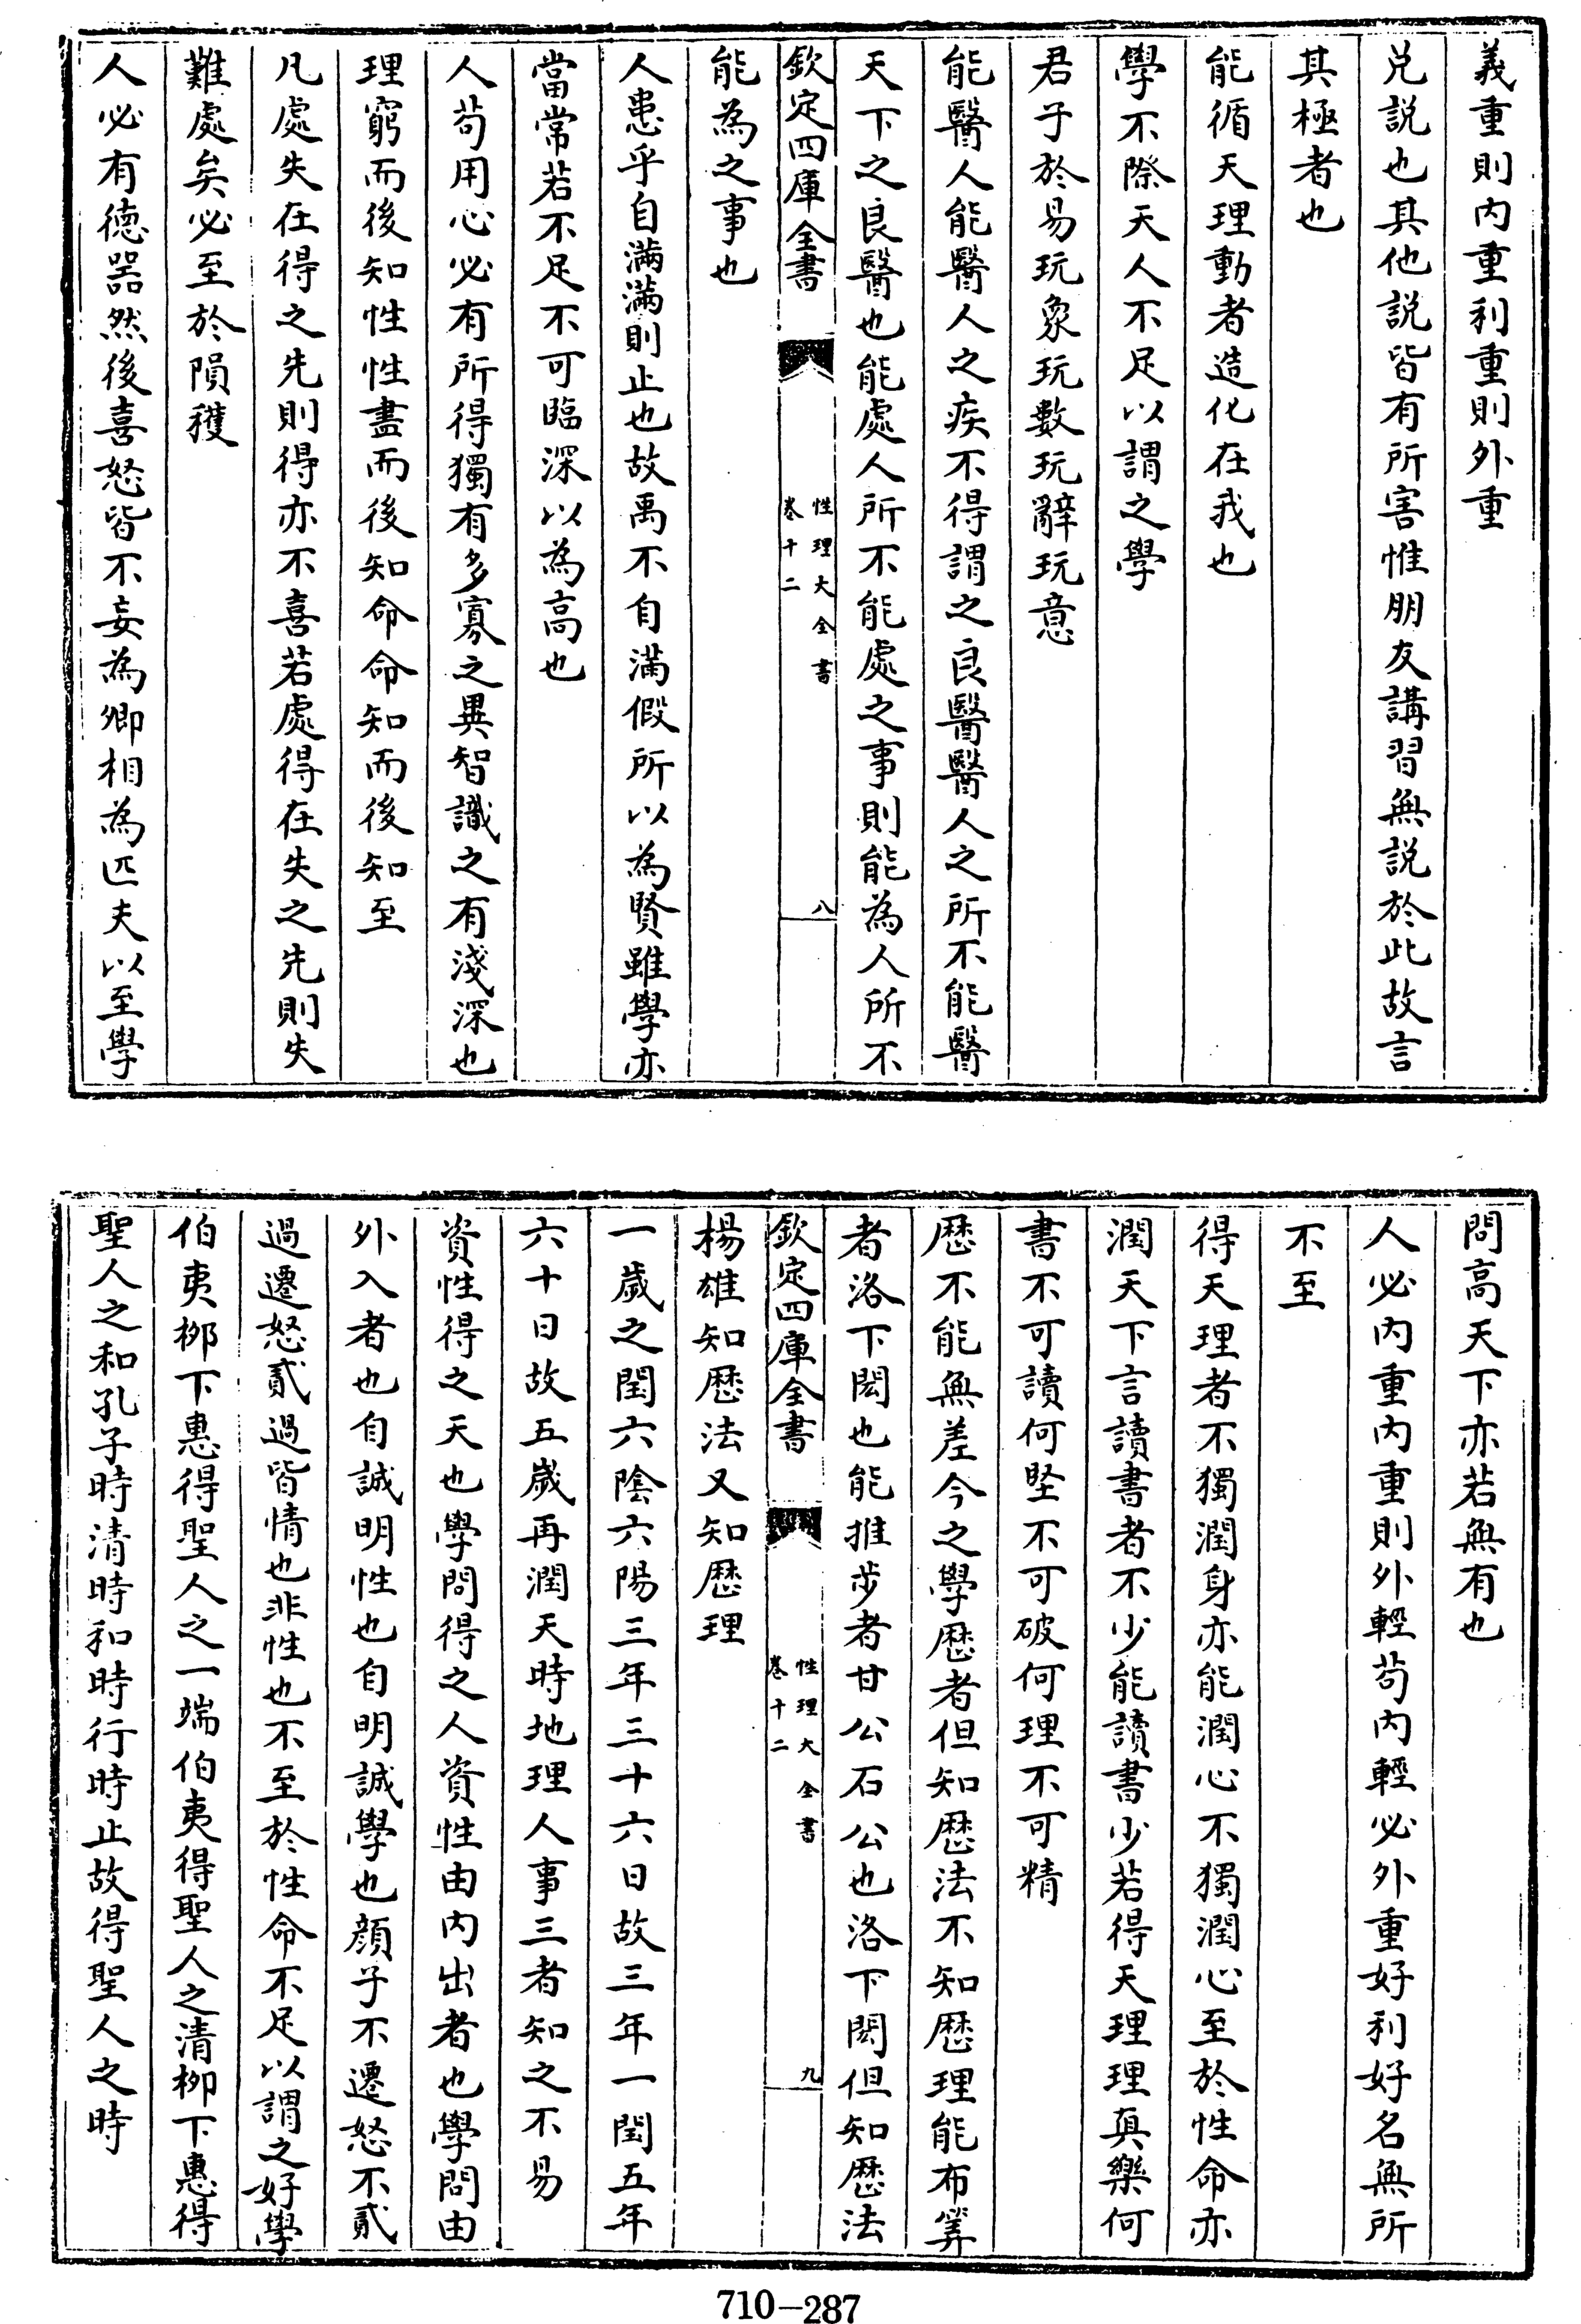 義重則内重利重則外重
兑説也其他説皆有所害惟朋友講習無説於此故言
其極者也
能循天理動者造化在我也
學不際天人不足以謂之學
君子於易玩象玩數玩辭玩意
能醫人能醫人之疾不得謂之良醫醫人之所不能醫
天下之良醫也能處人所不能處之事則能為人所不
欽定四庫全書
性理大全書
卷十二
八
能為之事也
人患乎自滿滿則止也故禹不自滿假所以為賢雖學亦
當常若不足不可臨深以為高也
人苟用心必有所得獨有多寡之異智識之有淺深也
理窮而後知性性盡而後知命命知而後知至
凡處失在得之先則得亦不喜若處得在失之先則失
難處矣必至於隕穫
人必有德器然後喜怒皆不妄為卿相為匹夫以至學
問高天下亦若無有也
人必内重内重則外輕苟内輕必外重好利好名無所
不至
得天理者不獨潤身亦能潤心不獨潤心至於性命亦
潤天下言讀書者不少能讀書少若得天理理真樂何
書不可讀何堅不可破何理不可精
歴不能無差今之學歴者但知歴法不知歴理能布算
者洛下閎也能推步者甘公石公也洛下閎但知歴法
欽定四庫全書
性理大全書
卷十二
九
楊雄知歴法又知歴理
一歲之閏六陰六陽三年三十六日故三年一閏五年
六十日故五歲再潤天時地理人事三者知之不易
資性得之天也學問得之人資性由内出者也學問由
外入者也自誠明性也自明誠學也顔子不遷怒不貳
過遷怒貳過皆情也非性也不至於性命不足以謂之好學
伯夷栁下惠得聖人之一端伯夷得聖人之清栁下惠得
聖人之和孔子時清時和時行時止故得聖人之時
710-287